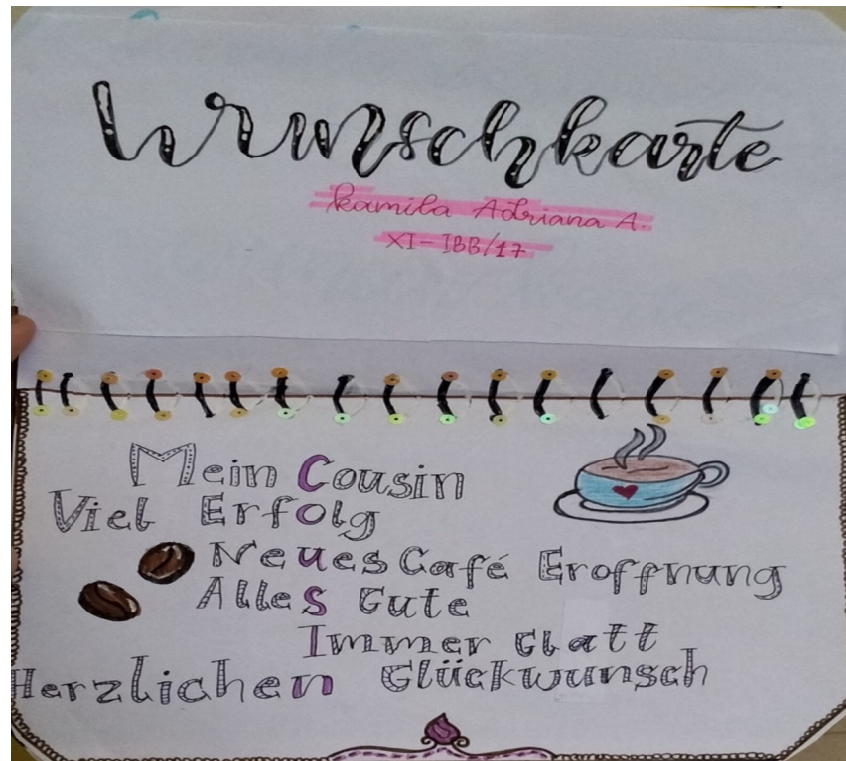 Wunschkarte
Kamila Adriana A.
XI-IBB/17
Mein Cousin
Viel Erfolg
Neues Café Eroffnung
Alles Gute
Immer Glatt
Herzlichen Glückwunsch